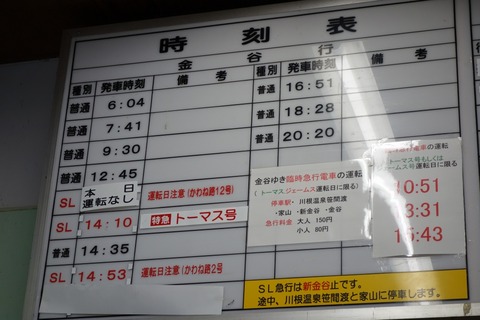 時刻表
金谷行
種別 発車時刻 備考 種別 発車時刻 備考
普通 6:04
普通 7:41
普通 9:30
普通 12:45
SL 本日運転なし 運転日注意(かわね路12号)
SL 14:10 特急 トーマス号
普通 14:35
SL 14:53 運転日注意(かわね路2号
普通 16:51
普通 18:28
普通 20:20
金谷ゆき臨時急行電車の運転
(トーマスジェームス運転日に限る)
停車駅・川根温泉笹間渡
・家山 ・新金谷 ・金谷
急行料金 大人 150円
小人 80円
臨時急行電車の運転
トーマス号もしくは
ジェームス号運転日に限る
10:51
13:31
15:43
SL急行は新金谷止です。
途中、川根温泉笹間渡と家山に停車します。